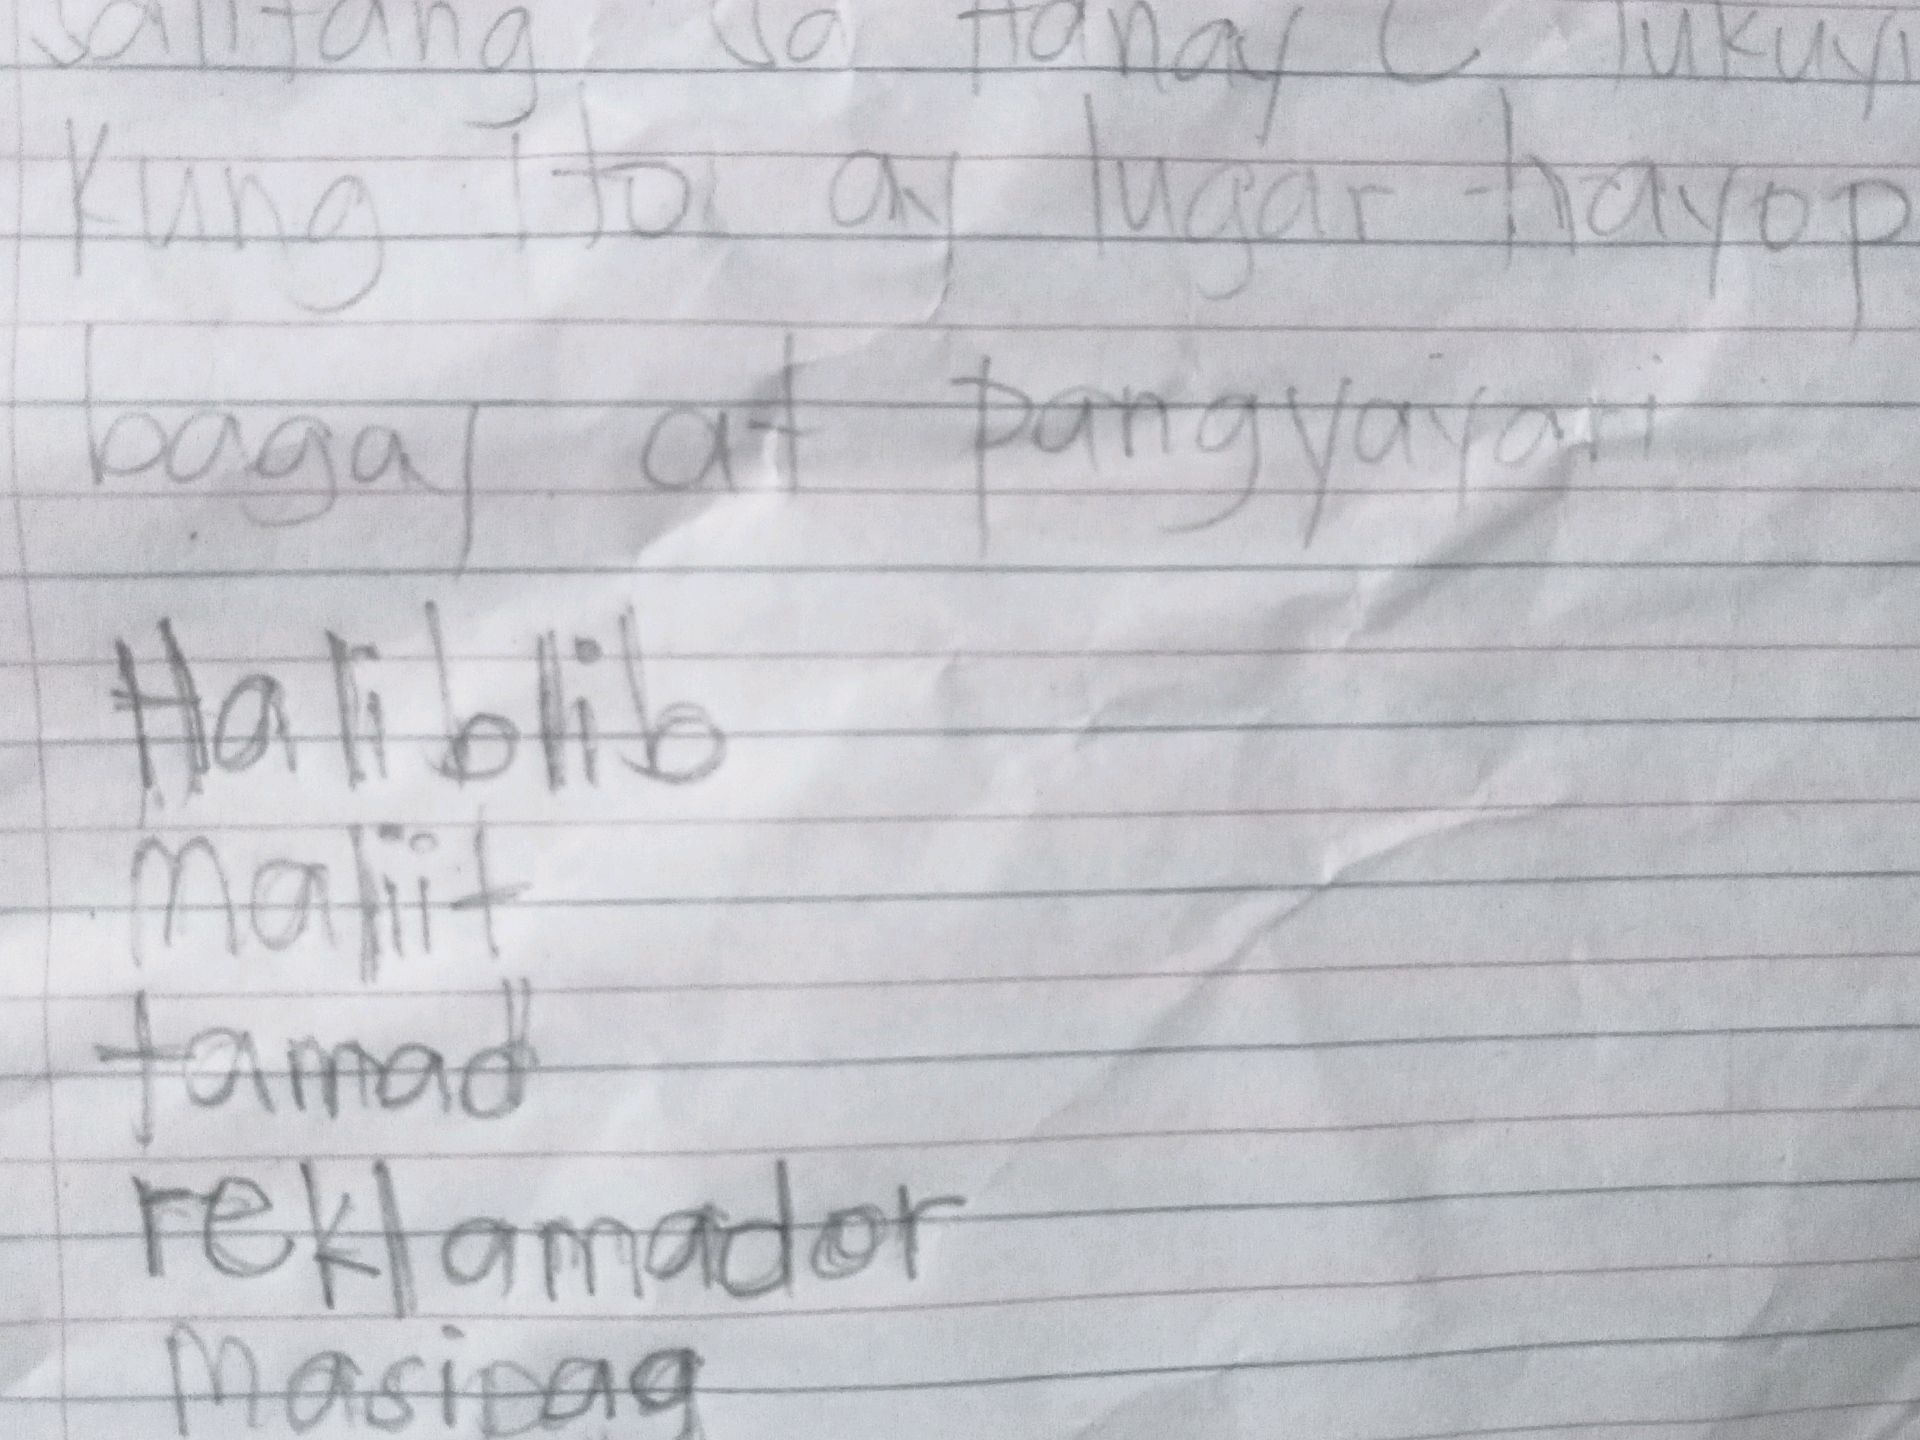 salitang sa Hanay C Tukuyi
kung ito ay lugar hayop
bagay at pangyayari
Haliblib
maliit
tamad
reklamador
masipag